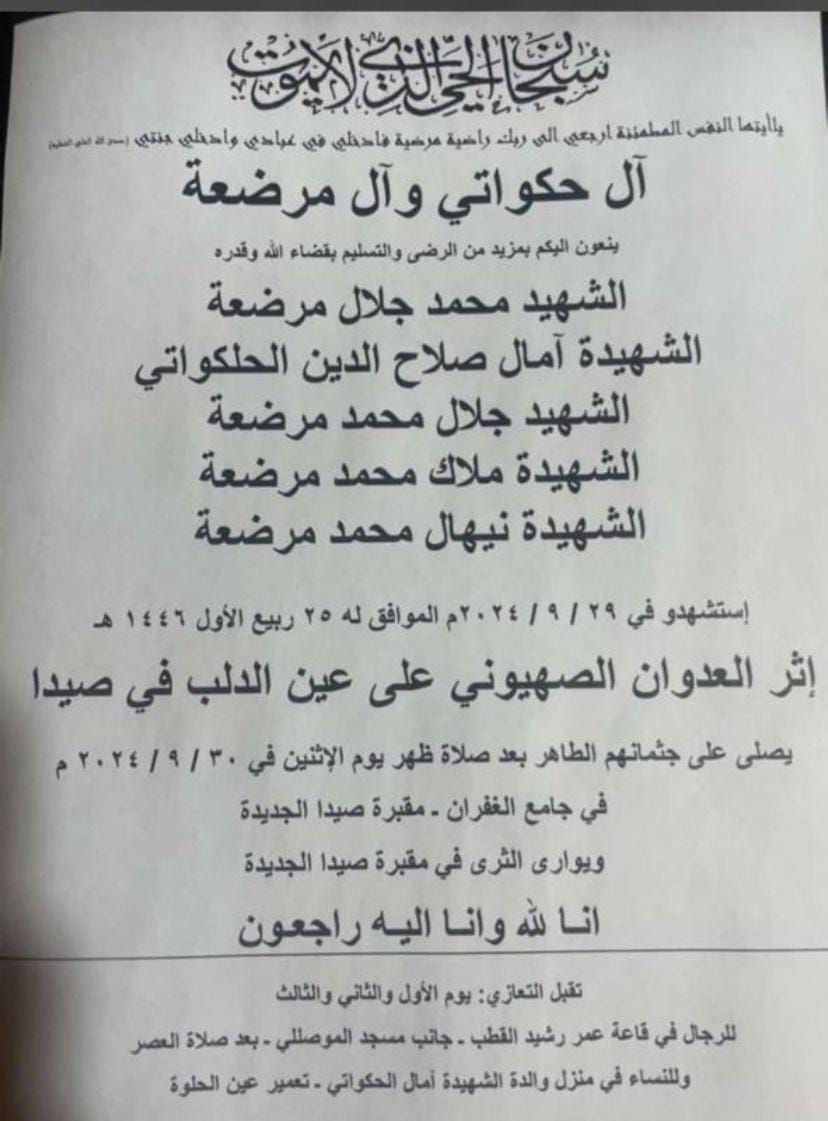 سبحان الحي الذي لا يموت
ياأيتها النفس المطمئنة ارجعي الى ربك راضية مرضية فادخلي في عبادي وادخلي جنتي (صدق الله العلي العظيم)
آل حكواتي وآل مرضعة
ينعون اليكم بمزيد من الرضى والتسليم بقضاء الله وقدره
الشهيد محمد جلال مرضعة
الشهيدة آمال صلاح الدين الحلكواتي
الشهيد جلال محمد مرضعة
الشهيدة ملاك محمد مرضعة
الشهيدة نيهال محمد مرضعة
إستشهدو في ٢٩ / ٩ / ٢٠٢٤م الموافق له ٢٥ ربيع الأول ١٤٤٦ هـ
إثر العدوان الصهيوني على عين الدلب في صيدا
يصلى على جثمانهم الطاهر بعد صلاة ظهر يوم الإثنين في ٣٠ / ٩ / ٢٠٢٤ م
في جامع الغفران - مقبرة صيدا الجديدة
ويوارى الثرى في مقبرة صيدا الجديدة
انا لله وانا اليه راجعون
تقبل التعازي: يوم الأول والثاني والثالث
للرجال في قاعة عمر رشيد القطب - جانب مسجد الموصللي - بعد صلاة العصر
وللنساء في منزل والدة الشهيدة آمال الحكواتي - تعمير عين الحلوة